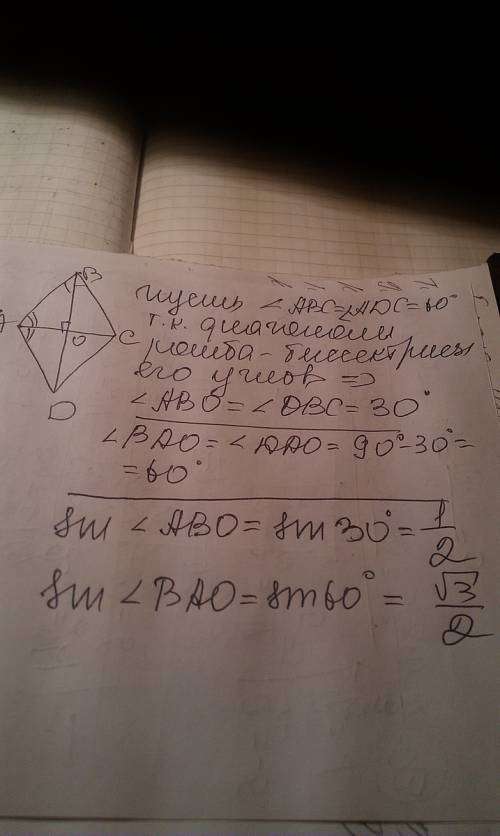 B
A
O
C
D
пусть ∠ABC=∠ADC=60°
т.к. диагонали
ромба - биссектрисы
его углов =>
∠ABO=∠OBC=30°
∠BAO=∠DAO=90°-30°=
=60°
sin ∠ABO=sin 30°=1/2
sin ∠BAO=sin 60°=√3/2